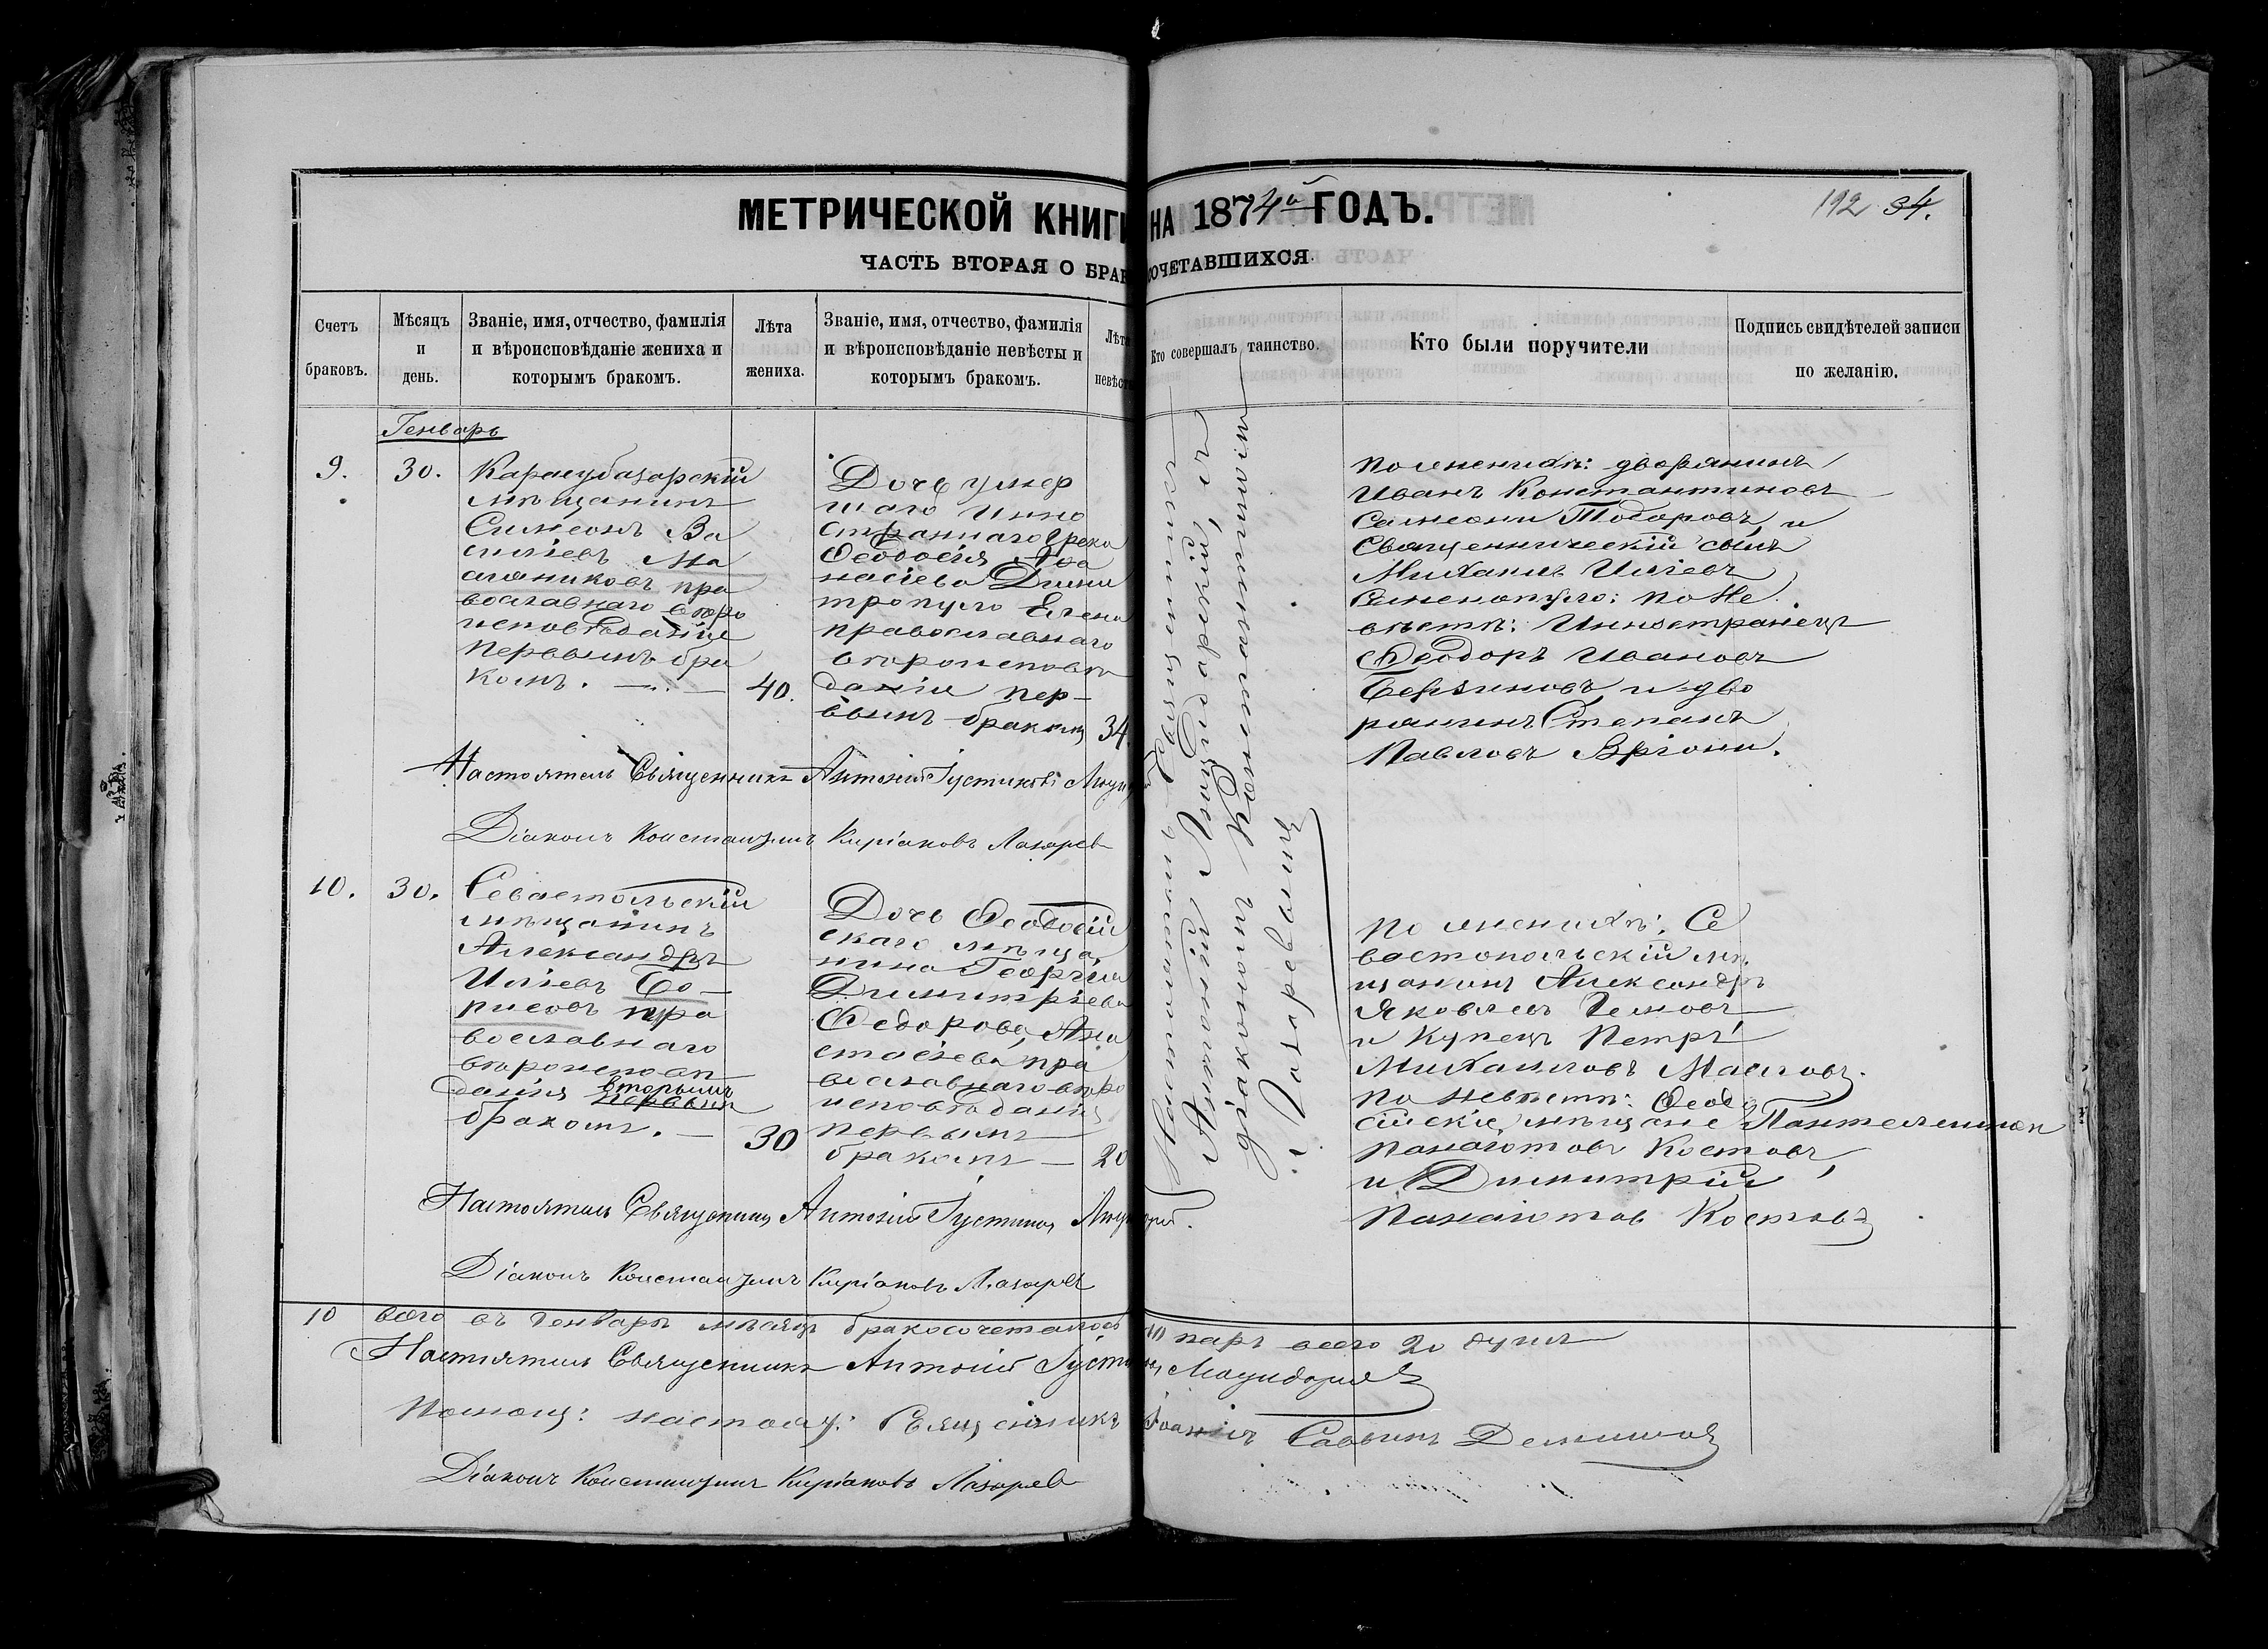 МЕТРИЧЕСКОЙ КНИГИ НА 1874й ГОДЪ.
192 34.
ЧАСТЬ ВТОРАЯ О БРАКОСОЧЕТАВШИХСЯ.
Счетъ браковъ.
Мѣсяцъ и день.
Званіе, имя, отчество, фамилія
и вѣроисповѣданіе жениха и
которымъ бракомъ.
Лѣта
жениха.
Званіе, имя, отчество, фамилія
и вѣроисповѣданіе невѣсты и
которымъ бракомъ.
Лѣта
невѣсты
Кто совершалъ таинство.
Кто были поручители
Подпись свидѣтелей записи
по желанію.
Генварь
9.
30.
Карасубазарскій
мѣщанинъ
Симеонъ Ва
силіевъ Ма
сляниковъ пра
вославнаго вѣро
исповѣданія
первымъ бра
комъ.
40.
Дочь умер
шаго инно
страннаго Грека
Феодосія Афа
насіева Дими
тропуло Елена
православнаго
вѣроисповѣ
данія пер-
вымъ бракомъ
34.
Настоятель Священникъ
Антоній Лоундарскій, съ
діакономъ Константиномъ
Лазаревымъ
по женихѣ: дворянинъ
Иванъ Константиновъ
Тодоровъ, и
Священническій сынъ
Михаилъ Иліевъ
по не
вѣстѣ: Инностранецъ
Феодоръ Ивановъ
и дво
рянинъ Степанъ
Павловъ Вріони.
Настоятель Священникъ Антоній Іустиновъ
Діаконъ Константинъ Киріаковъ Лазаревъ
10.
30.
Севастопольскій
мѣщанинъ
Александръ
Иліевъ Бо-
рисовъ пра
вославнаго
вѣроисповѣ
данія вторымъ
первымъ
бракомъ.
30
Дочь Феодосій
скаго мѣща
нина Георгія
Димитріева
Федорова, Ана
стасіева пра
вославнаго вѣро
исповѣданія
первымъ
бракомъ
20
по женихѣ: Се
вастопольскій мѣ
щанинъ Александръ
Яковлевъ
и купецъ Петръ
Михаиловъ Масловъ.
по невѣстѣ: Феодо
сійскіе мѣщане Пантелеимон
Панаіотовъ Костовъ,
и Димитрій
Панаіотов Костовъ
Настоятель Священникъ Антоній Іустиновъ
Діаконъ Константинъ Киріаковъ Лазаревъ
10 всего въ Генварѣ мѣсяцѣ бракосочеталось 10 паръ всего 20 душъ
Настоятель Священникъ Антоній Іустиновъ
Помощ: настоят: Священникъ Іоаннъ Саввинъ
Діаконъ Константинъ Киріаковъ Лазаревъ